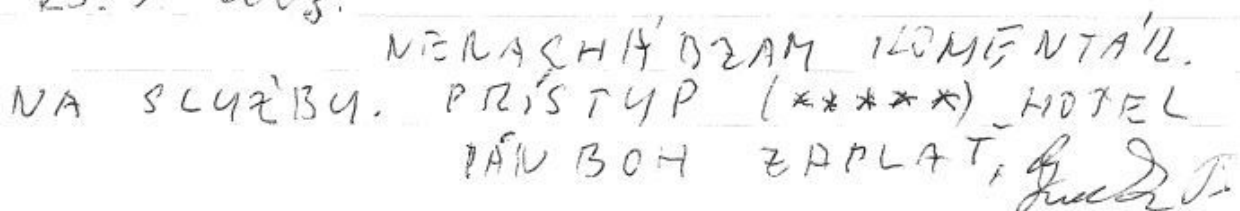 NENACHÁDZAM KOMENTÁR.
NA SLUŽBU. PRÍSTUP (*****) HOTEL
PÁN BOH ZAPLAŤ,